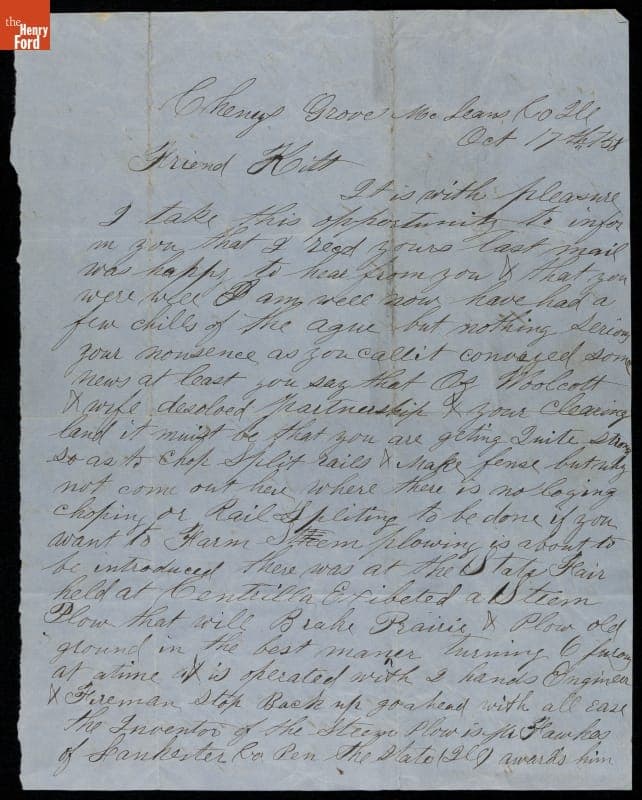 the
Henry
Ford
Chenys Grove McLeans Co Ill
Oct 17th /58
Friend Kitt
It is with pleasure
I take this opportunity to infor
m you that I recd yours last mail
was happy to hear from you & that you
were well I am well now have had a
few chills of the ague but nothing Serious
your nonsence as you call it conveyed some
news at least you say that Oz Woolcott
& wife desolved partnership & your clearing
land it must be that you are geting Quite strong
so as to chop Split rails & Make fense but why
not come out here where there is no loging
choping or Rail Spliting to be done if you
want to Farm Steem plowing is about to
be introduced there was at the State Fair
held at Centrilla Exibeted a Steem
Plow that will Brake Prairie & Plow old
ground in the best maner turning 6 furows
at a time & is operated with 2 hands Engineer
& Fireman Stop Back up go ahead with all ease
the Inventor of the Steem Plow is Mr Fawkes
of Lankester Co Pen the State (Ill) awards him